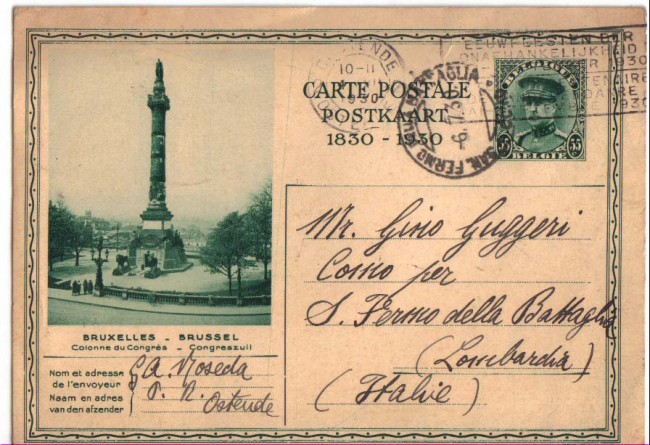 CARTE POSTALE
POSTKAART
1830 - 1930
BELGIQUE
35 35
BELGIË
OSTENDE
10-11
1930
EEUWFEESTEN DER
ONAFHANKELIJKHEID
1930
1930
SAN FERMO DELLA BATTAGLIA
BRUXELLES - BRUSSEL
Colonne du Congrès - Congreszuil
Nom et adresse
de l'envoyeur
Naam en adres
van den afzender
A. Noseda
Ostende
Mr. Gino Guggeri
Como per
S. Fermo della Battaglia
(Lombardia)
(Italie)